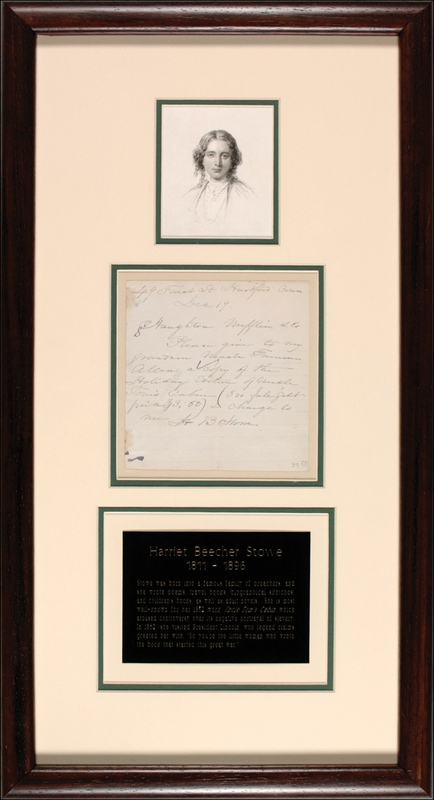 Hartford Conn
Dec 19
Houghton Mifflin & Co
Please give to my
Allen, a copy of the
Holiday Edition of Uncle
Tom's Cabin
change to
me H B Stowe
Harriet Beecher Stowe
1811 - 1896
Stowe was born into a famous family of preachers, and
she wrote poems, travel books, biographical sketches,
and children's books, as well as adult novels. She is most
well-known for her 1852 work Uncle Tom's Cabin which
aroused controversy over its negative portrayal of slavery.
In 1862, she visited President Lincoln, who legend claims
greeted her with "So you're the little woman who wrote
the book that started this great war."